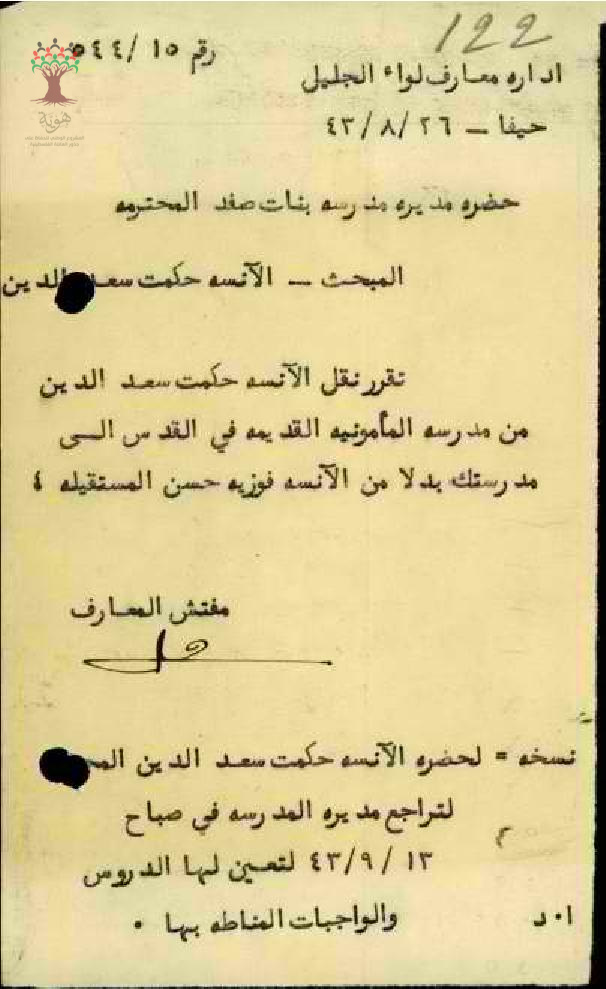 122
رقم ١٥ /٥٤٤
هوية
اداره معارف لواء الجليل
حيفا — ٢٦ /٨/ ٤٣
حضره مديره مدرسه بنات صفد المحترمه
المبحث — الآنسه حكمت سعد الدين
تقرر نقل الآنسه حكمت سعد الدين
من مدرسه المأمونيه القديمه في القدس الى
مدرستك بدلا من الآنسه فوزيه حسن المستقيله ٤
مفتش المعارف
نسخه = لحضره الآنسه حكمت سعد الدين
لتراجع مديره المدرسه في صباح
١٣ /٩/ ٤٣ لتعين لها الدروس
والواجبات المناطه بها ٠
ا٠د